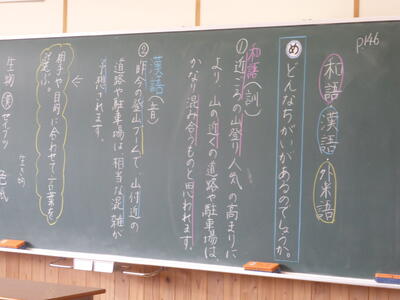 p146
和語・漢語・外来語
め どんなちがいがあるのでしょうか。
和語(訓)
① 近ごろの山登り人気の高まりに
より、山の近くの道路や駐車場は、
かなり混み合うものと思われます。
漢語(音)
② 昨今の登山ブームで、山付近の
道路や駐車場は相当な混雑が
予想されます。
↓
相手や目的に合わせて言葉を
選ぶ。
生物